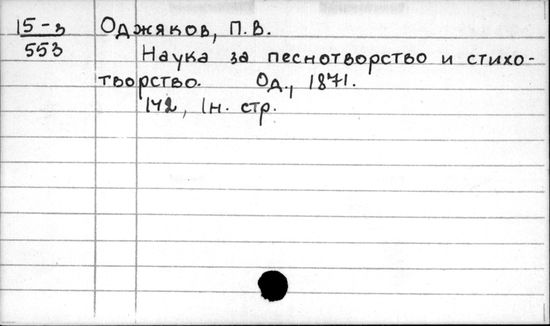 15-з Оджяков, П.В.
553
Наука за песнотворство и стихо-
творство. Од., 1871.
142, 1н. стр.